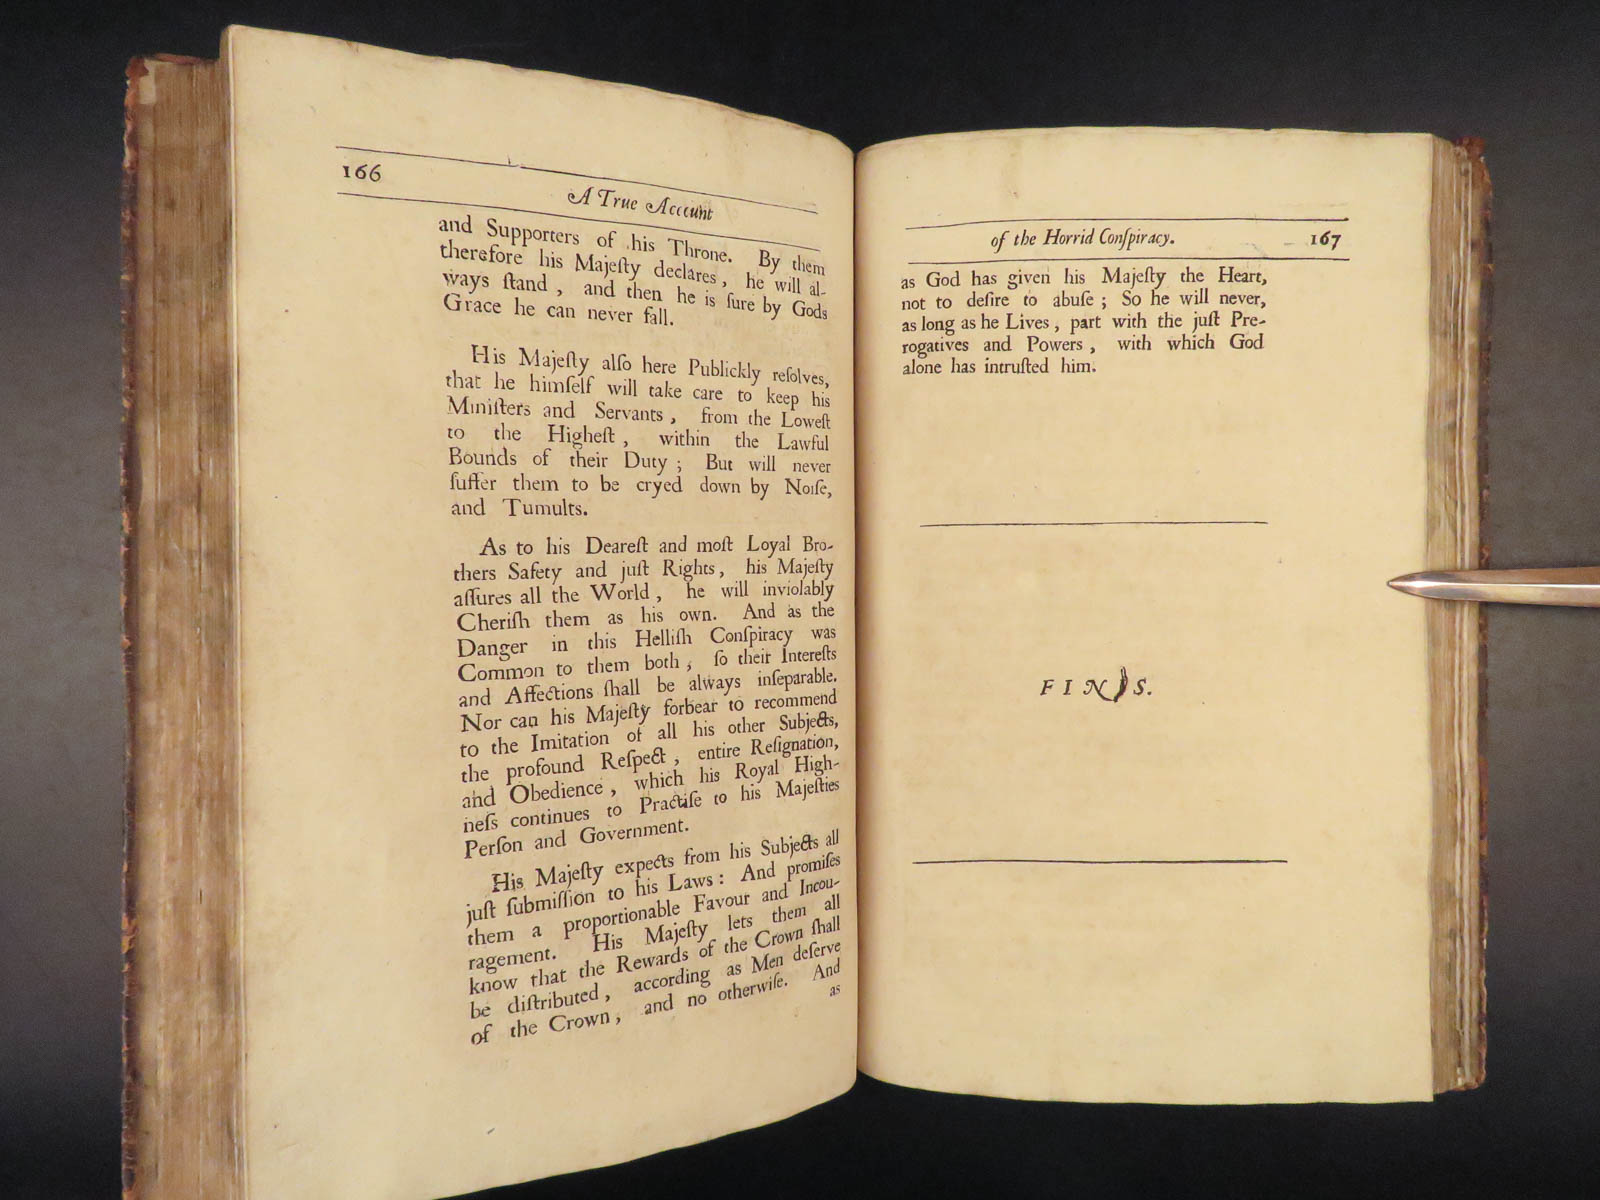 166
A True Acccunt
and Supporters of his Throne. By them
therefore his Majeſty declares, he will al-
ways ſtand, and then he is ſure by Gods
Grace he can never fall.
His Majeſty alſo here Publickly reſolves,
that he himſelf will take care to keep his
Miniſters and Servants, from the Loweſt
to the Higheſt, within the Lawful
Bounds of their Duty; But will never
ſuffer them to be cryed down by Noiſe,
and Tumults.
As to his Deareſt and moſt Loyal Bro-
thers Safety and juſt Rights, his Majeſty
aſſures all the World, he will inviolably
Cheriſh them as his own. And as the
Danger in this Helliſh Conſpiracy was
Common to them both, ſo their Intereſts
and Affections ſhall be always inſeparable.
Nor can his Majeſty forbear to recommend
to the Imitation of all his other Subjects,
the profound Reſpect, entire Reſignation,
and Obedience, which his Royal High-
neſs continues to Practiſe to his Majeſties
Perſon and Government.
His Majeſty expects from his Subjects all
juſt ſubmiſſion to his Laws: And promiſes
them a proportionable Favour and Incou-
ragement. His Majeſty lets them all
know that the Rewards of the Crown ſhall
be diſtributed, according as Men deſerve
of the Crown, and no otherwiſe. And
as
of the Horrid Conſpiracy. 167
as God has given his Majeſty the Heart,
not to deſire to abuſe; So he will never,
as long as he Lives, part with the juſt Pre-
rogatives and Powers, with which God
alone has intruſted him.
FINIS.